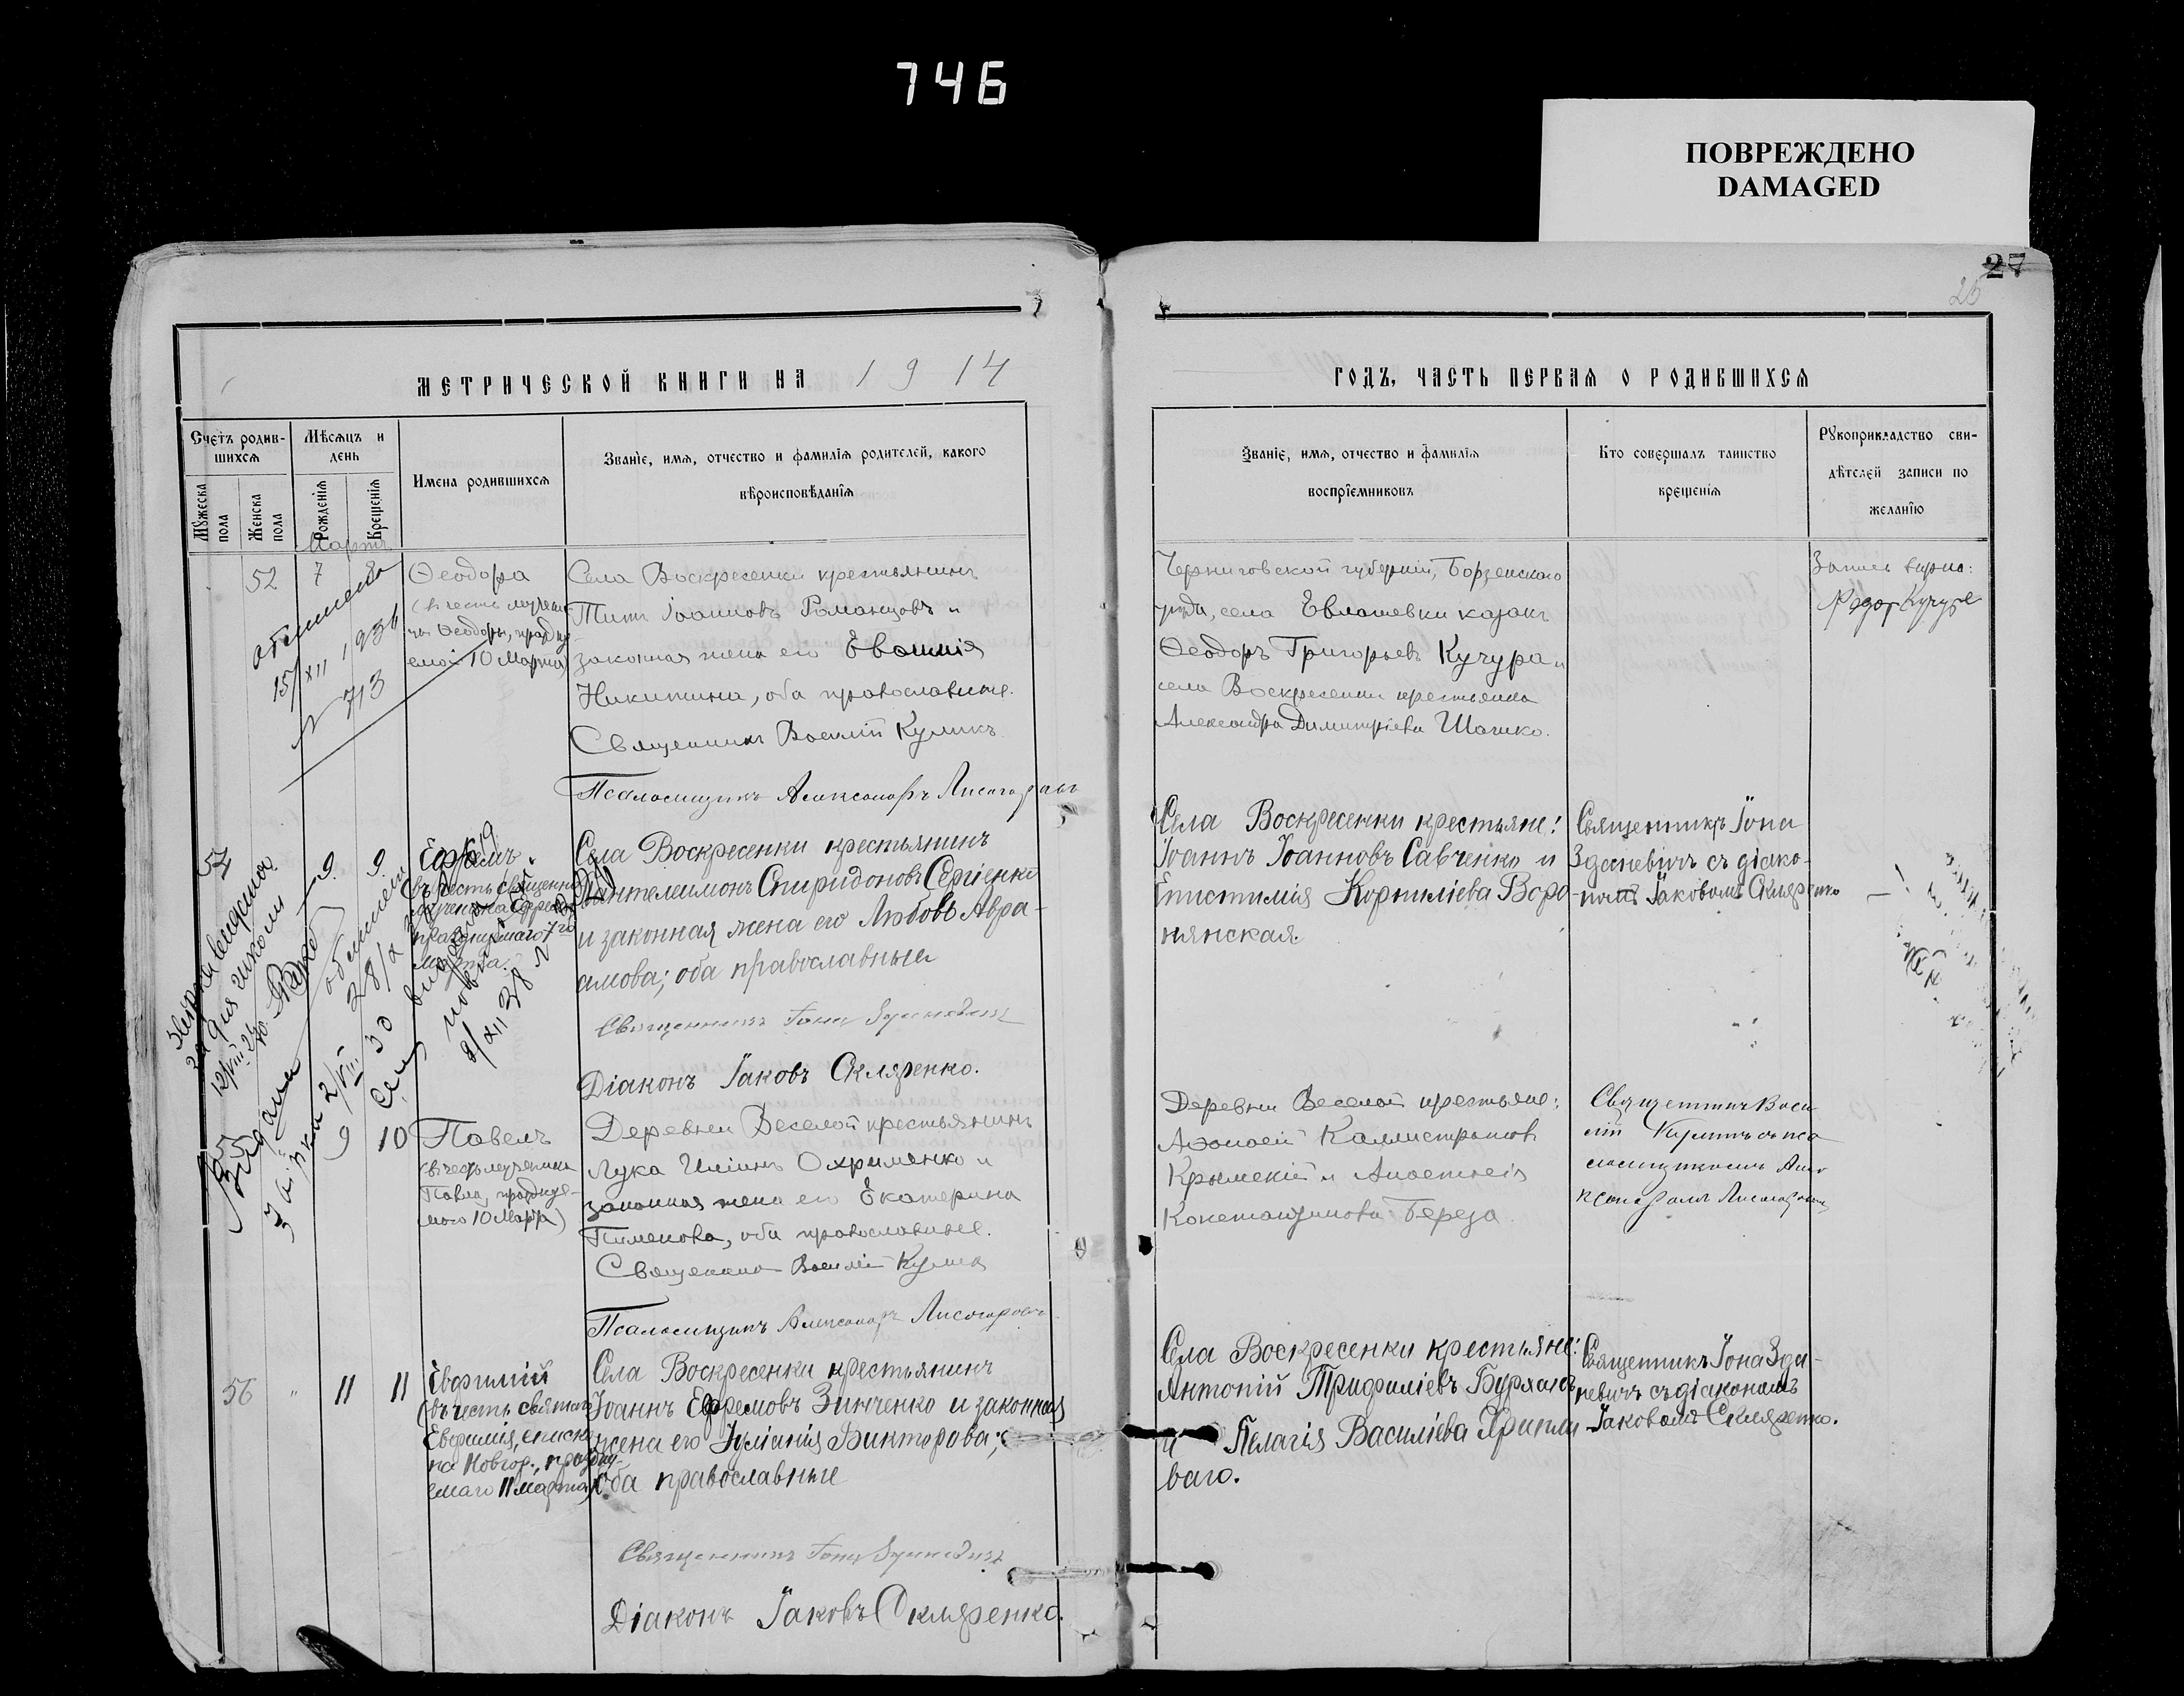 746
ПОВРЕЖДЕНО
DAMAGED
27
25
МЕТРИЧЕСКОЙ КНИГИ НА 1914
ГОДЪ, ЧАСТЬ ПЕРВАЯ О РОДИВШИХСЯ
Счетъ родив-
шихся
Мѣсяцъ и
день
Мужеска
пола
Женска
пола
Рожденія
Крещенія
Имена родившихся
Званіе, имя, отчество и фамилія родителей, какого
вѣроисповѣданія
Званіе, имя, отчество и фамилія
воспріемниковъ
Кто совершалъ таинство
крещенія
Рукоприкладство сви-
дѣтелей записи по
желанію
Мартъ
52 7 8
Ѳеодора
(въ честь мучени-
цы Ѳеодоры, праздну-
емой 10 Марта)
15/XII 1936
N 713
Села Воскресенки крестьянинъ
Титъ Іоанновъ Романцовъ и
законная жена его
Никитина, оба православные.
Священникъ Василій Куликъ
Псаломщикъ Александръ
Черниговской губерніи, Борзенского
уѣзда, села Евлашевки казакъ
Ѳеодоръ Григорьевъ Кучура и
села Воскресенки крестьянка
Александра Димитріева Шашко.
Запись вѣрна:
54 9 9
Ефремъ
въ честь священно-
мученика Ефрема
празднуемаго 7го
Марта.
Села Воскресенки крестьянинъ
Пантелеимонъ Спиридоновъ Сергіенко
и законная жена его Любовь Авра-
амова; оба православные
Священникъ Іона Зданевичъ
Діаконъ Іаковъ Скляренко.
Села Воскресенки крестьяне:
Іоаннъ Іоанновъ Савченко и
Епистимія Корниліева Воро-
нянская.
Священникъ Іона
Зданевичъ съ діако-
номъ Іаковомъ Скляренко
55 9 10
Павелъ
(въ честь мученика
Павла, праздну-
емого 10 Марта)
Деревни Веселой крестьянинъ
Лука Иліинъ Охрименко и
законная жена его Екатерина
Пименова, оба православные.
Священникъ Василій Куликъ
Псаломщикъ Александръ
Деревни Веселой крестьяне:
Аѳонасій Каллистратовъ
Крымскій и Анастасія
Константинова Береза.
Священникъ Васи-
лій Куликъ съ пса-
ломщикомъ Але-
56 " 11 11
Евфимій
(въ честь святаго
Евфимія, еписко-
па Новгор., праздну-
емаго 11 марта)
Села Воскресенки крестьянинъ
Іоаннъ Ефремовъ Зинченко и законная
жена его Іуліанія Викторова;
оба православные
Священникъ Іона Зданевичъ
Діаконъ Іаковъ Скляренко.
Села Воскресенки крестьяне:
Антоній Трифиліевъ
и Пелагія Василіева
ваго.
Священникъ Іона Зда-
невичъ съ діакономъ
Іаковомъ Скляренко.